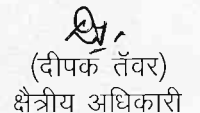 (दीपक तॅवर)
क्षैत्रीय अधिकारी